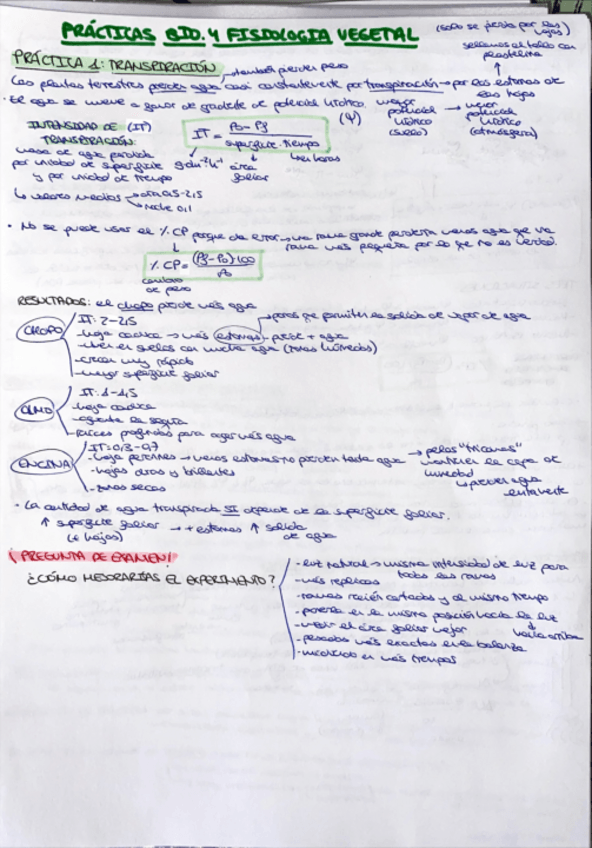 PRÁCTICAS BIO. Y FISIOLOGIA VEGETAL
(solo se pierda por las hojas)
sellamos el tallo con plastelina
PRÁCTICA 1: TRANSPIRACIÓN → también pierden peso
Las plantas terrestres pierden agua casi constantemente por transpiración → por los estomas de las hojas
· El agua se mueve a favor de gradiente de potencial hídrico. (Ψ) mayor potencial hídrico (suelo) → menor potencial hídrico (atmósfera)
INTENSIDAD DE (IT) TRANSPIRACIÓN:
IT = Po - Pf / superficie · tiempo
masa de agua perdida
por unidad de superficie
y por unidad de tiempo
área foliar
horas
↳ valores medios → día 0,5-2,5
→ noche 0,1
· No se puede usar el % CP porque da error → una rama grande perdería menos agua que una rama más pequeña por lo que no es verdad.
% CP = (Pf - Po) 100 / Po
cambio de peso
RESULTADOS: el chopo pierde más agua
CHOPO
IT: 2-2,5
- hoja caduca → más estomas → pierde + agua
→ poros que permiten la salida de vapor de agua
- viven en suelos con mucha agua (zonas húmedas)
- crecen muy rápido
- mayor superficie foliar
OLMO
IT: 1-1,5
- hoja caduca
- aguanta la sequía
- raíces profundas para coger más agua
ENCINA
IT: 0,3-0,7
- hoja perennes → menos estomas, no pierden tanta agua → pelos "tricomas"
mantienen la capa de humedad
↳ pierden agua lentamente
- hojas duras y brillantes
- zonas secas
· La cantidad de agua transpirada SI depende de la superficie foliar.
↑ superficie foliar → + estomas ↑ salida de agua
(+ hojas)
¡PREGUNTA DE EXAMEN!
¿CÓMO MEJORARÍAS EL EXPERIMENTO?
- luz natural → misma intensidad de luz para todas las ramas
- más réplicas
- ramas recién cortadas y al mismo tiempo
- ponerla en la misma posición hacia la luz
↓ hacia arriba
- medir el área foliar mejor
- pesadas más exactas en la balanza
- medirlo en más tiempos